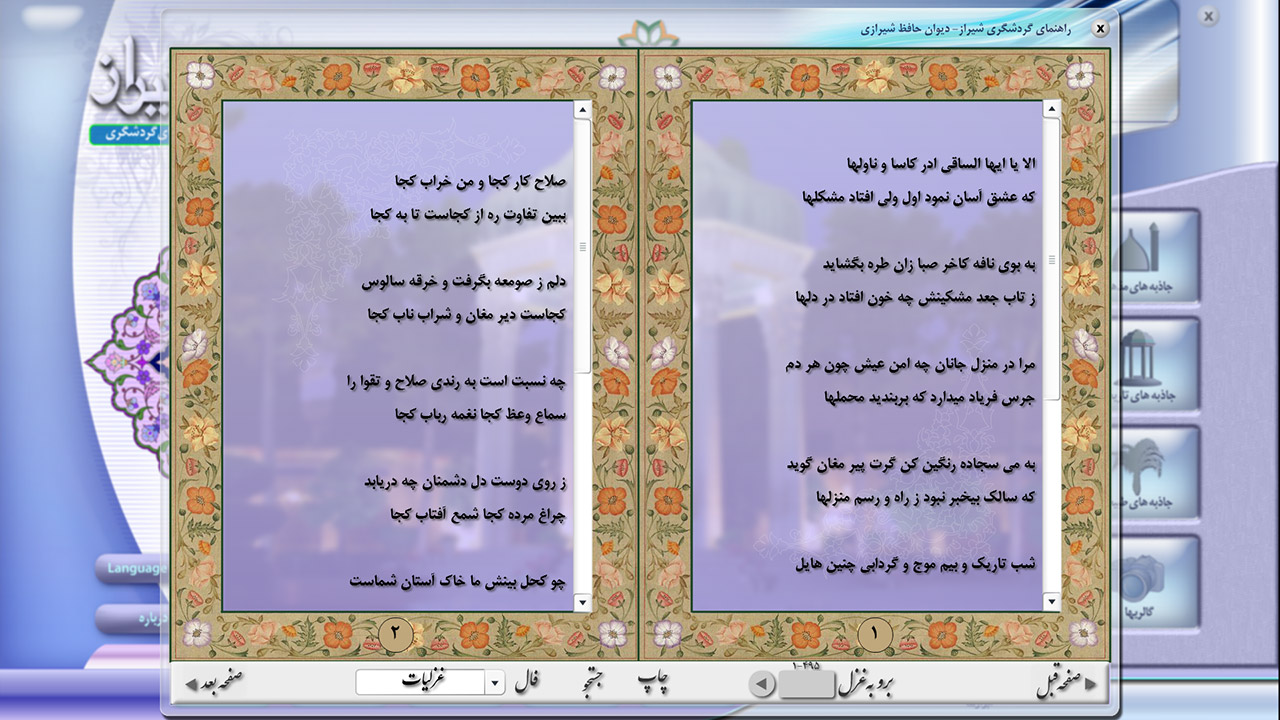 راهنمای گردشگری شیراز- دیوان حافظ شیرازی
الا یا ایها الساقی ادر کاسا و ناولها
که عشق آسان نمود اول ولی افتاد مشکلها
به بوی نافه کاخر صبا زان طره بگشاید
ز تاب جعد مشکینش چه خون افتاد در دلها
مرا در منزل جانان چه امن عیش چون هر دم
جرس فریاد میدارد که بربندید محملها
به می سجاده رنگین کن گرت پیر مغان گوید
که سالک بیخبر نبود ز راه و رسم منزلها
شب تاریک و بیم موج و گردابی چنین هایل
۱
صلاح کار کجا و من خراب کجا
ببین تفاوت ره از کجاست تا به کجا
دلم ز صومعه بگرفت و خرقه سالوس
کجاست دیر مغان و شراب ناب کجا
چه نسبت است به رندی صلاح و تقوا را
سماع وعظ کجا نغمه رباب کجا
ز روی دوست دل دشمنان چه دریابد
چراغ مرده کجا شمع آفتاب کجا
چو کحل بینش ما خاک آستان شماست
۲
صفحه قبل
برو به غزل
۱-۴۹۵
چاپ
جستجو
فال
غزلیات
صفحه بعد
جاذبه های
جاذبه های
جاذبه های
گالریها
گردشگری
Language
درباره